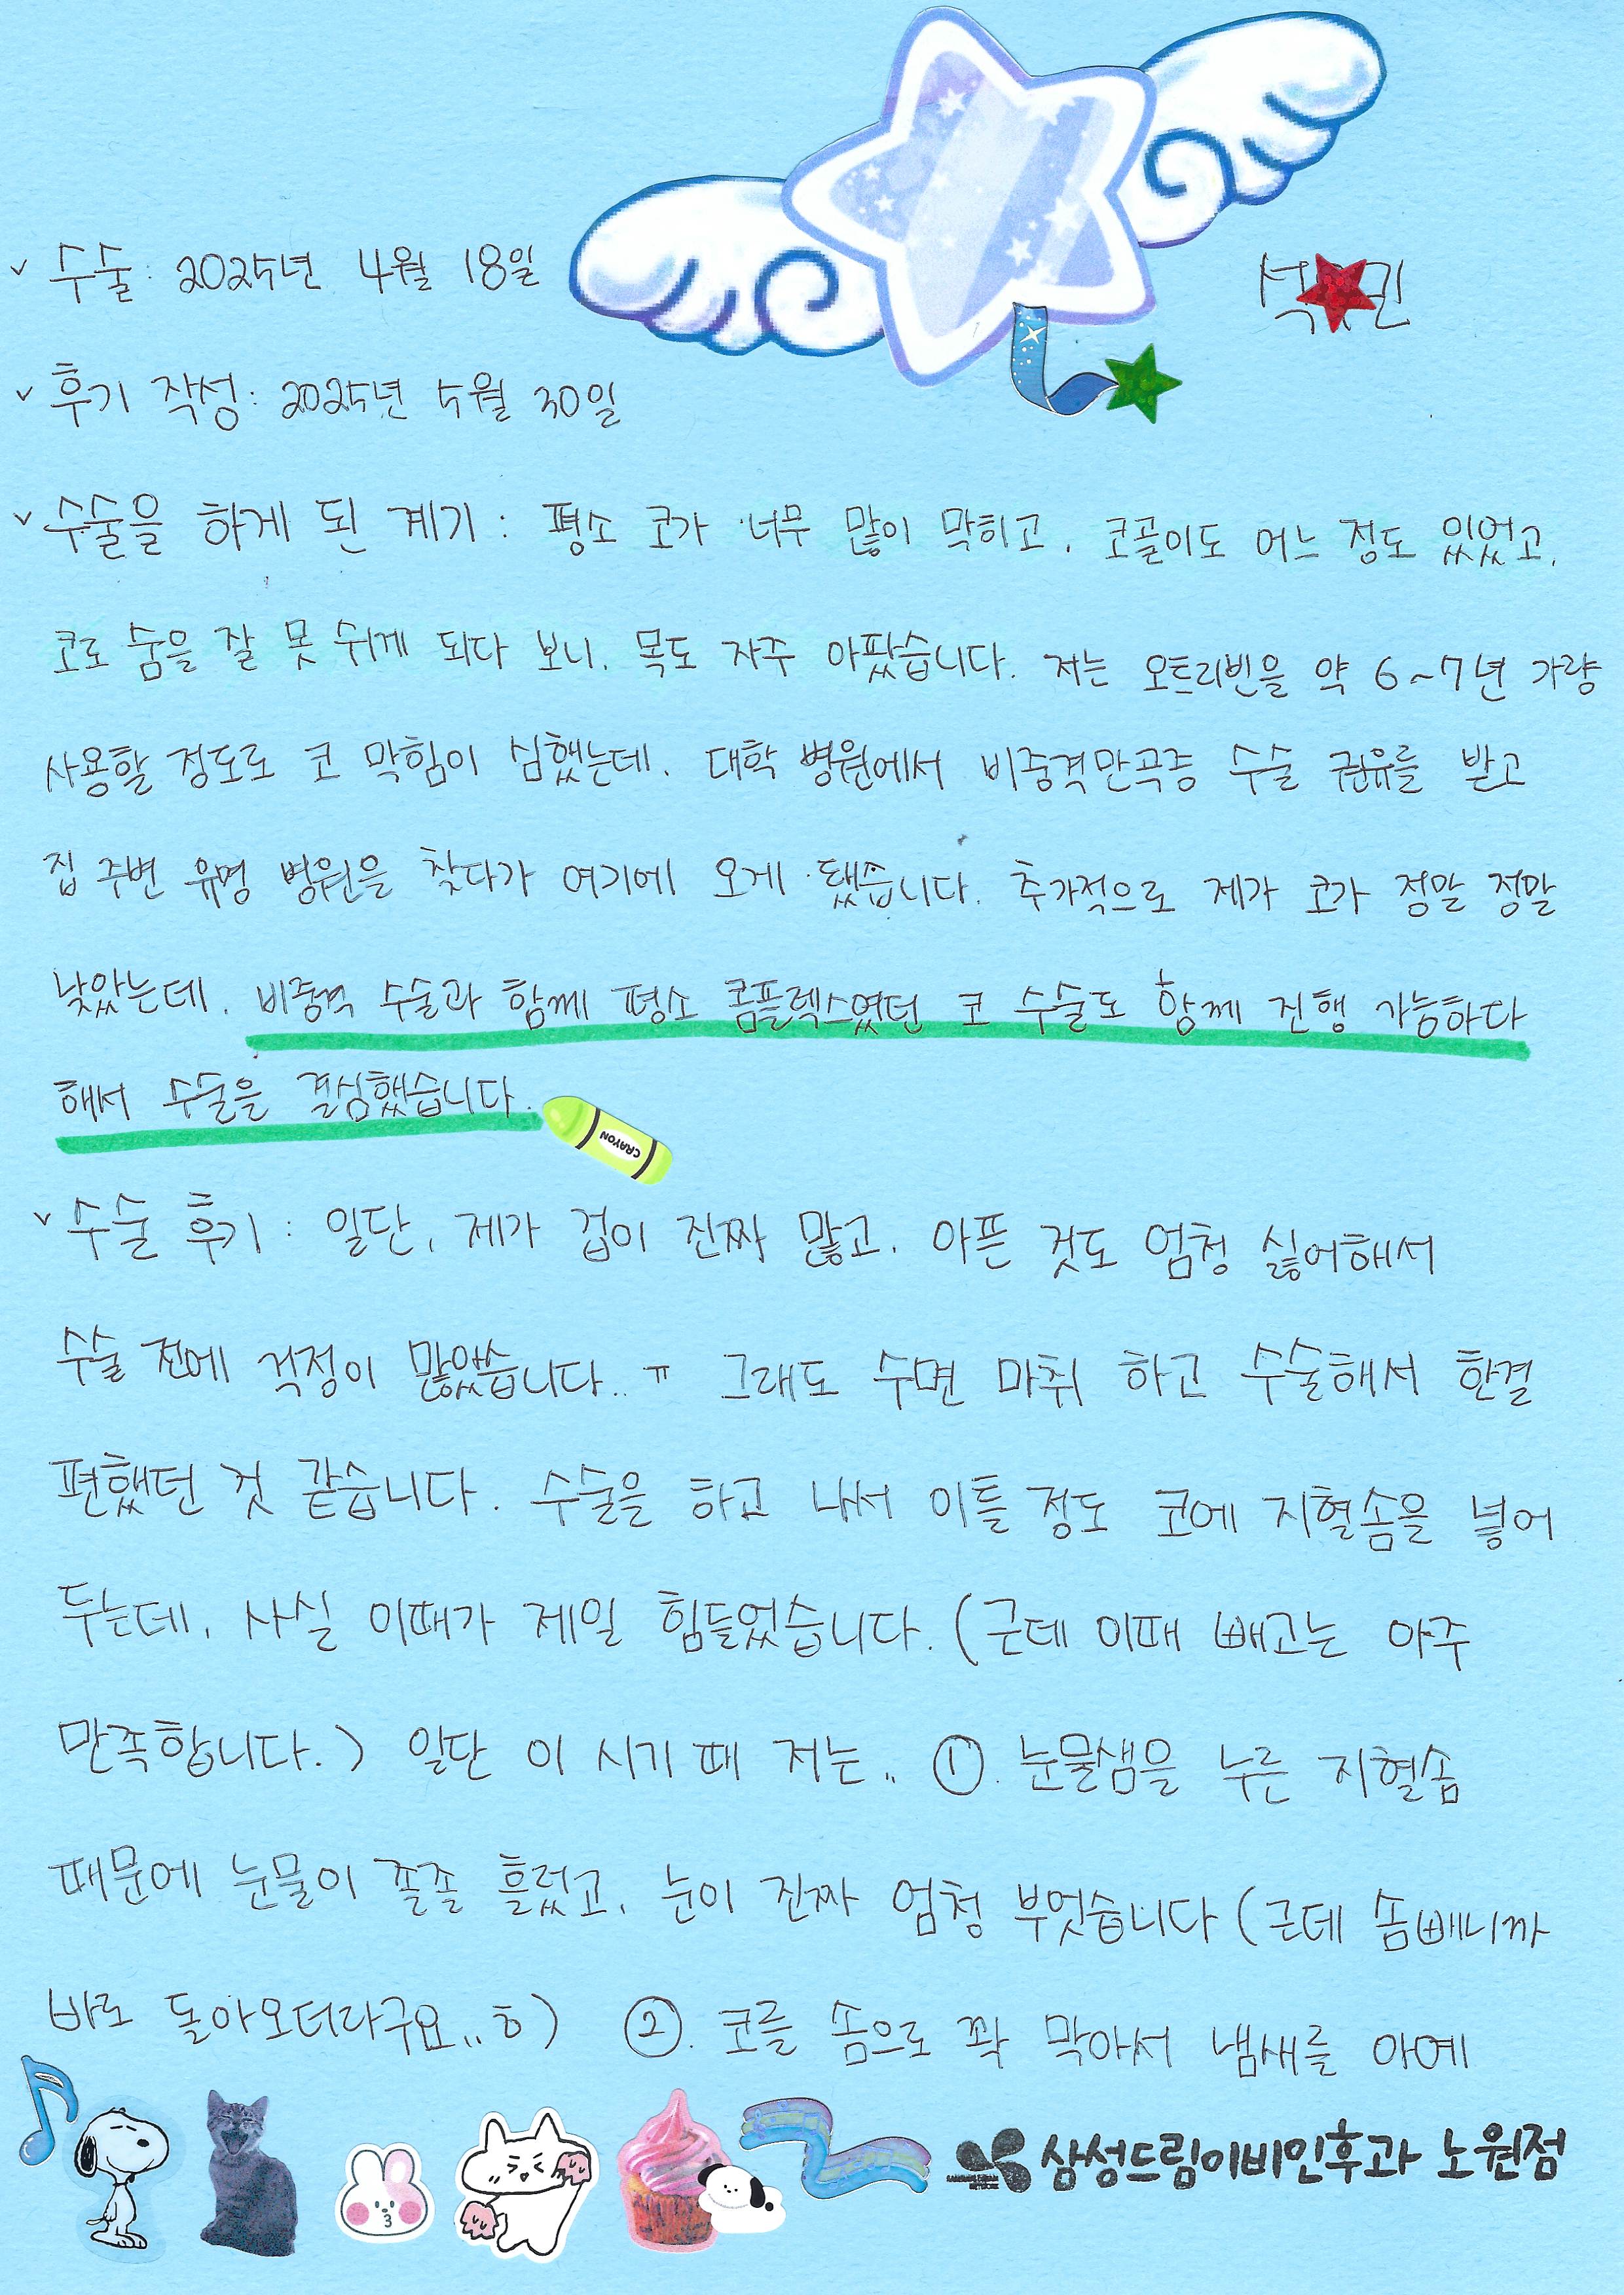 ✓ 수술: 2025년 4월 18일
석 민
✓ 후기 작성: 2025년 5월 30일
✓ 수술을 하게 된 계기 : 평소 코가 너무 많이 막히고, 코골이도 어느 정도 있었고,
코로 숨을 잘 못 쉬게 되다 보니, 목도 자주 아팠습니다. 저는 오트리빈을 약 6~7년 가량
사용할 정도로 코 막힘이 심했는데, 대학 병원에서 비중격만곡증 수술 권유를 받고
집 주변 유명 병원을 찾다가 여기에 오게 됐습니다. 추가적으로 제가 코가 정말 정말
낮았는데, 비중격 수술과 함께 평소 콤플렉스였던 코 수술도 함께 진행 가능하다
해서 수술을 결심했습니다.
CRAYON
✓ 수술 후기 : 일단, 제가 겁이 진짜 많고, 아픈 것도 엄청 싫어해서
수술 전에 걱정이 많았습니다.. ㅠ 그래도 수면 마취 하고 수술해서 한결
편했던 것 같습니다. 수술을 하고 나서 이틀 정도 코에 지혈솜을 넣어
두는데, 사실 이때가 제일 힘들었습니다. (근데 이때 빼고는 아주
만족합니다.) 일단 이 시기 때 저는.. ①. 눈물샘을 누른 지혈솜
때문에 눈물이 줄줄 흘렀고, 눈이 진짜 엄청 부었습니다 (근데 솜빼니까
바로 돌아오더라구요..ㅎ) ②. 코를 솜으로 꽉 막아서 냄새를 아예
삼성드림이비인후과 노원점